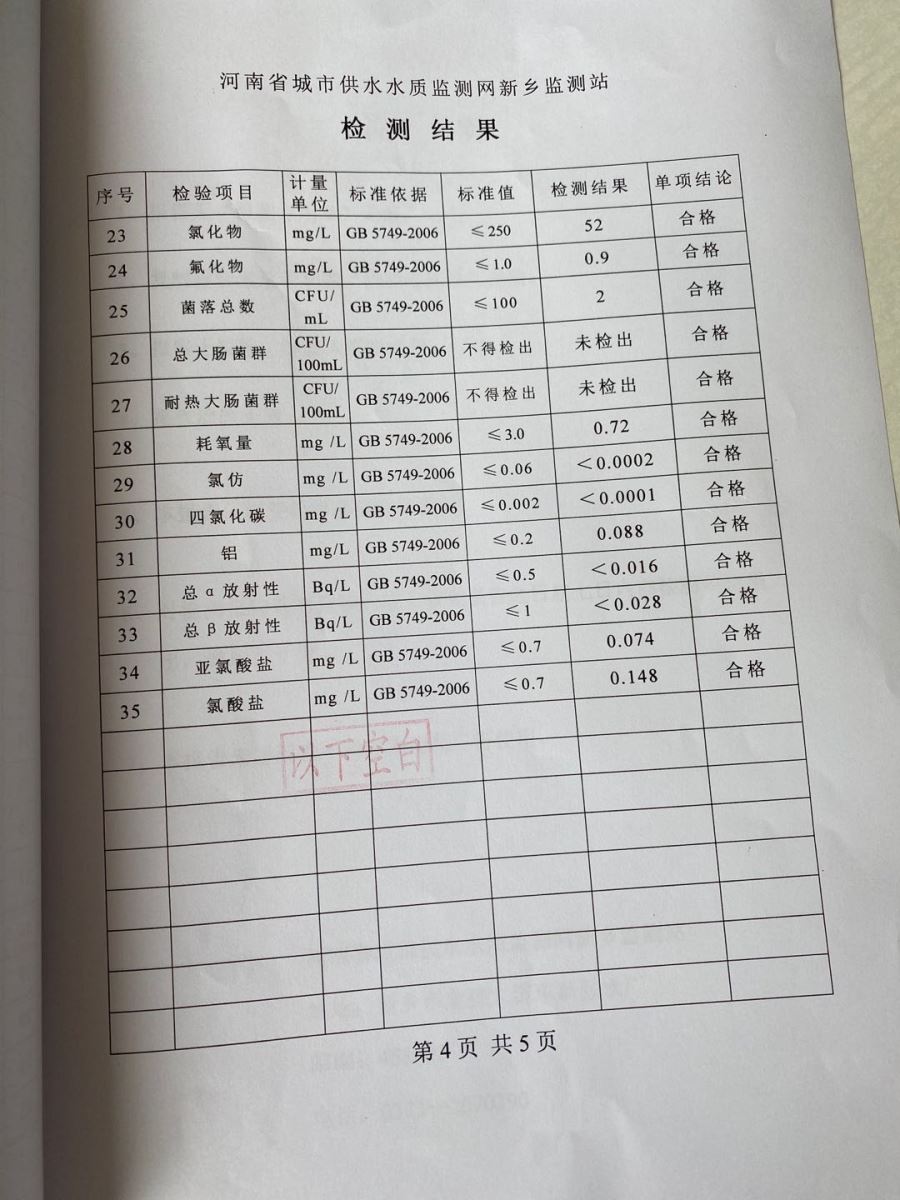 河南省城市供水水质监测网新乡监测站
检 测 结 果
序号 检验项目 计量单位 标准依据 标准值 检测结果 单项结论
23 氯化物 mg/L GB 5749-2006 ≤250 52 合格
24 氟化物 mg/L GB 5749-2006 ≤1.0 0.9 合格
25 菌落总数 CFU/mL GB 5749-2006 ≤100 2 合格
26 总大肠菌群 CFU/100mL GB 5749-2006 不得检出 未检出 合格
27 耐热大肠菌群 CFU/100mL GB 5749-2006 不得检出 未检出 合格
28 耗氧量 mg /L GB 5749-2006 ≤3.0 0.72 合格
29 氯仿 mg /L GB 5749-2006 ≤0.06 <0.0002 合格
30 四氯化碳 mg /L GB 5749-2006 ≤0.002 <0.0001 合格
31 铝 mg/L GB 5749-2006 ≤0.2 0.088 合格
32 总α放射性 Bq/L GB 5749-2006 ≤0.5 <0.016 合格
33 总β放射性 Bq/L GB 5749-2006 ≤1 <0.028 合格
34 亚氯酸盐 mg /L GB 5749-2006 ≤0.7 0.074 合格
35 氯酸盐 mg /L GB 5749-2006 ≤0.7 0.148 合格
以下空白
第4页 共5页